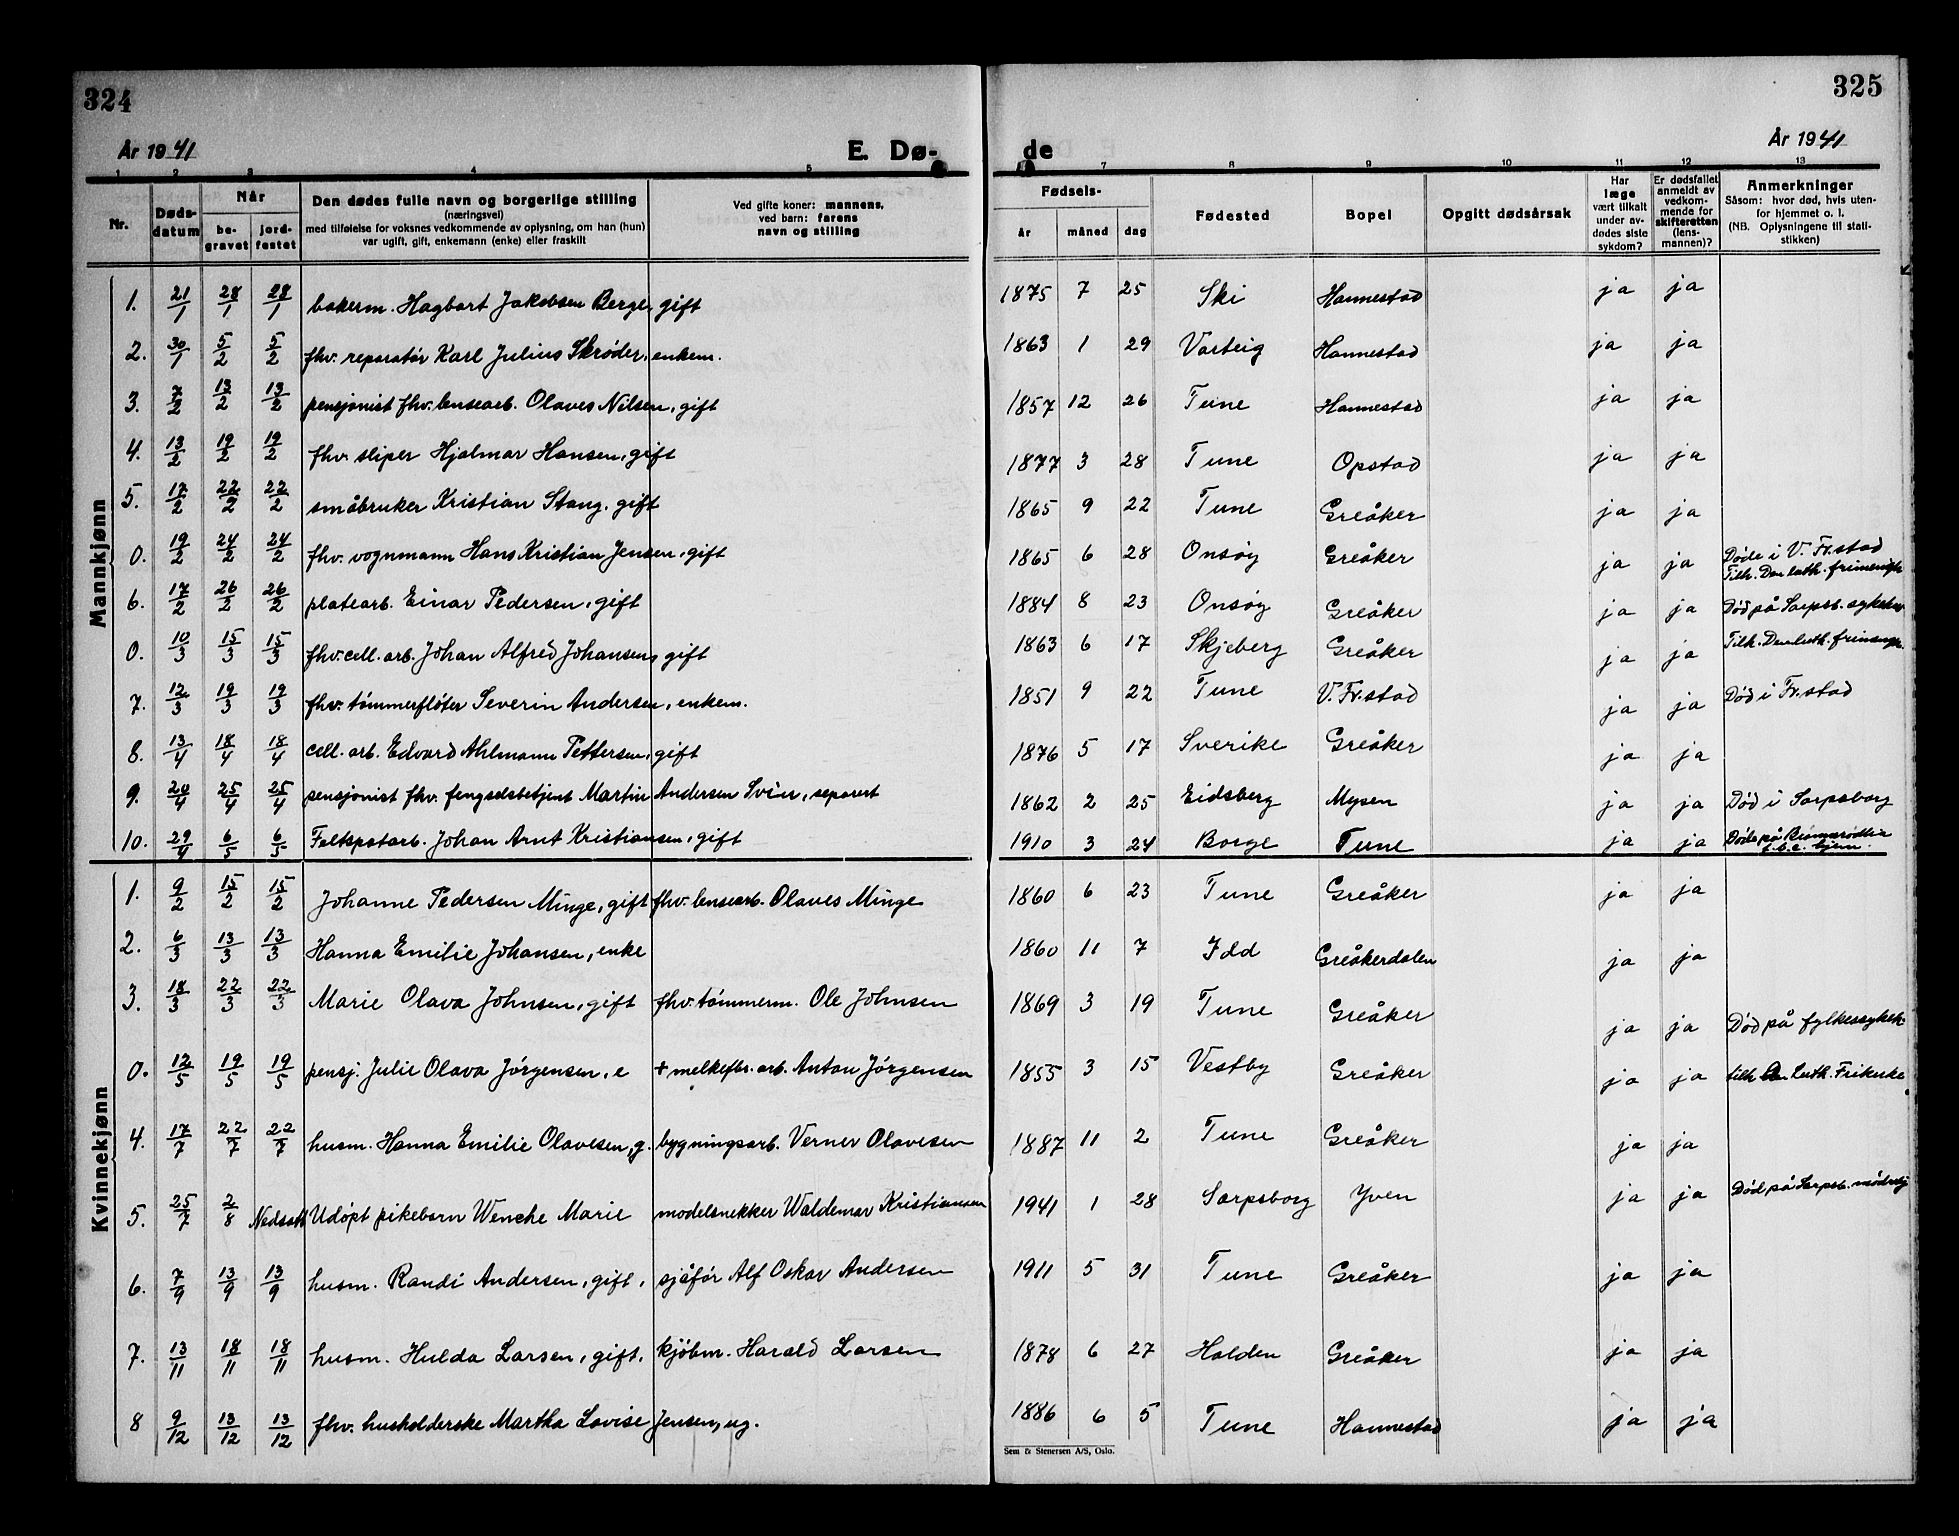 324
År 1941
E. Dø-
1 2 3 4 5
Nr.
Døds-
datum
Når
be-
gravet
jord-
festet
Den dødes fulle navn og borgerlige stilling
(næringsvei)
med tilføielse for voksnes vedkommende av oplysning, om han (hun)
var ugift, gift, enkemann (enke) eller fraskilt
Ved gifte koner: mannens,
ved barn: farens
navn og stilling
Mannkjønn
1. 21/1 28/1 28/1 bakerm. Hagbart Jakobsen Berge, gift
2. 30/1 5/2 5/2 fhv. reparatør Karl Julius Skrøder, enkem.
3. 7/2 13/2 13/2 pensjonist fhv. lensearb. Olaves Nilsen, gift
4. 13/2 19/2 19/2 fhv. sliper Hjalmar Hansen, gift
5. 17/2 22/2 22/2 småbruker Kristian Stang, gift
0. 19/2 24/2 24/2 fhv. vognmann Hans Kristian Jensen, gift
6. 17/2 26/2 26/2 platearb. Einar Pedersen, gift
0. 10/3 15/3 15/3 fhv. cell. arb. Johan Alfred Johansen, gift
7. 12/3 19/3 19/3 fhv. tømmerfløter Severin Andersen, enkem.
8. 13/4 18/4 18/4 cell. arb. Edvard Ahlmann Pettersen, gift
9. 20/4 25/4 25/4 pensjonist fhv. fengselsbetjent Martin Andersen Svier, separert
10. 29/4 6/5 6/5 Feltspatarb. Johan Arnt Kristiansen, gift
Kvinnekjønn
1. 9/2 15/2 15/2 Johanne Pedersen Minge, gift fhv. lensearb. Olaves Minge
2. 6/3 13/3 13/3 Hanna Emilie Johansen, enke
3. 18/3 22/3 22/3 Marie Olava Johnsen, gift fhv. tømmerm. Ole Johnsen
0. 12/5 19/5 19/5 pensj. Julie Olava Jørgensen, e + melkefbr. arb. Anton Jørgensen
4. 17/7 22/7 22/7 husm. Hanna Emilie Olavesen, g. bygningsarb. Verner Olavesen
5. 25/7 2/8 Nedsatt Udøpt pikebarn Wenche Marie modelsnekker Waldemar Kristiansen
6. 7/9 13/9 13/9 husm. Randi Andersen, gift, sjåfør Alf Oskar Andersen
7. 13/11 18/11 18/11 husm. Hulda Larsen, gift, kjøbm. Harald Larsen
8 9/12 13/12 13/12 fhv. husholderske Martha Lovise Jensen, ug.
325
År 1941
de
7 8 9 10 11 12 13
Fødsels-
år måned dag
Fødested
Bopel
Opgitt dødsårsak
Har
læge
vært tilkalt
under av-
dødes siste
sykdom?
Er dødsfallet
anmeldt av
vedkom-
mende for
skifteretten
(lens-
mannen)?
Anmerkninger
Såsom: hvor død, hvis uten-
for hjemmet o. l.
(NB. Oplysningene til stati-
stikken)
1875 7 25 Ski Hannestad ja ja
1863 1 29 Varteig Hannestad ja ja
1857 12 26 Tune Hannestad ja ja
1877 3 28 Tune Opstad ja ja
1865 9 22 Tune Greåker ja ja
1865 6 28 Onsøy Greåker ja ja Døde i V. Fr.stad
Tilh. Den luth. frimenigh
1884 8 23 Onsøy Greåker ja ja Død på Sarpsb. sykehus
1863 6 17 Skjeberg Greåker ja ja Tilh. Den luth. frimengh.
1851 9 22 Tune V. Fr.stad ja ja Død i Fr.stad
1876 5 17 Sverike Greåker ja ja
1862 2 25 Eidsberg Mysen ja ja Død i Sarpsborg
1910 3 24 Borge Tune ja ja Døde på
hjem.
1860 6 23 Tune Greåker ja ja
1860 11 7 Idd Greåkerdalen ja ja
1869 3 19 Tune Greåker ja ja Død på fylkessykeh.
1855 3 15 Vestby Greåker ja ja tilh. Den Luth. Frikirke
1887 11 2 Tune Greåker ja ja
1941 1 28 Sarpsborg Yven ja ja Død på Sarpsb. mødrehj
1911 5 31 Tune Greåker ja ja
1878 6 27 Halden Greåker ja ja
1886 6 5 Tune Hannestad ja ja
Sem & Stenersen A/S, Oslo.